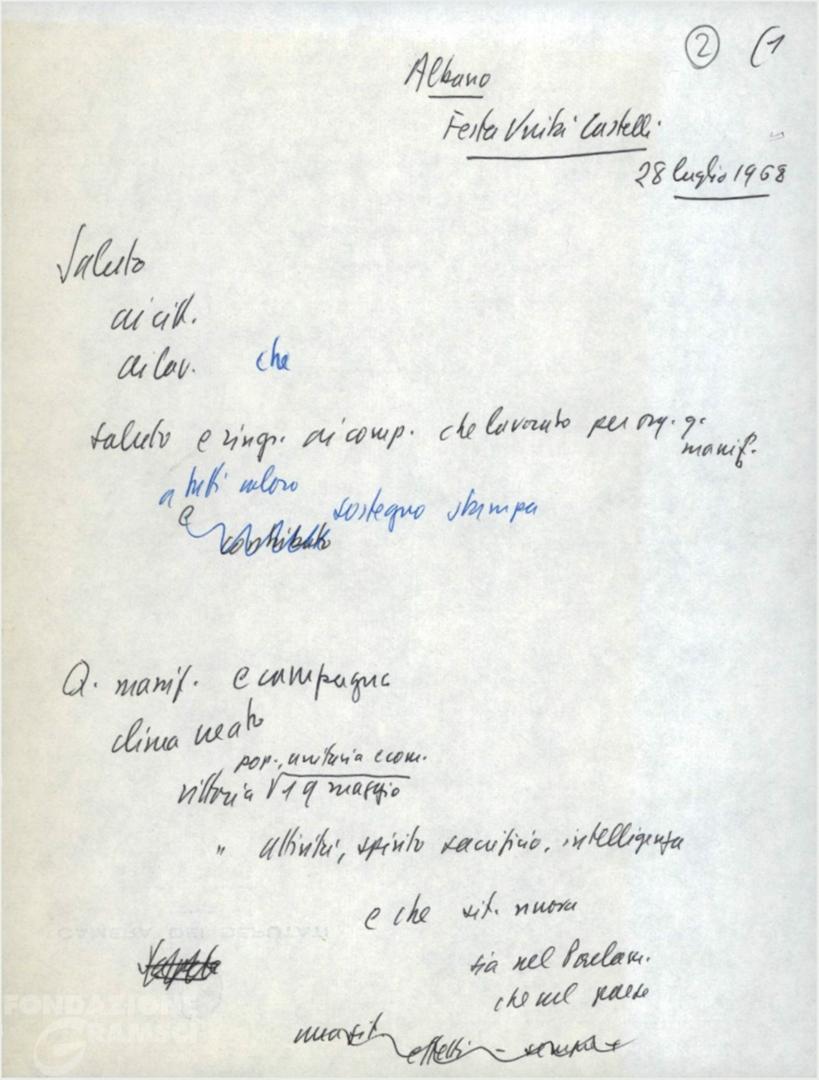 ② (1
Albano
Festa Unità Castelli
28 luglio 1968
Saluto
ai citt.
ai lav. che
saluto e ringr. ai comp. che lavorato per org. q.
manif.
a tutti coloro
e sostegno stampa
contributo
Q. manif. e campagna
clima creato
pop., unitaria e com.
vittoria √ 19 maggio
" attività, spirito sacrificio, intelligenza
e che sit. nuova
sia nel Parlam.
che nel paese
nuova sit. effetti
CAMERA DEI DEPUTATI
FONDAZIONE
GRAMSCI